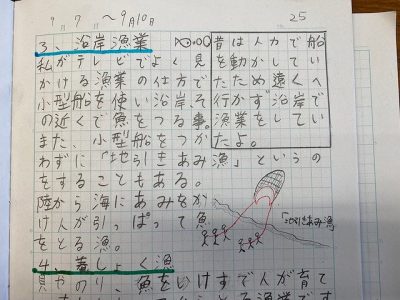 9月7〜9月10日
25
3、沿岸漁業
私がテレビでよく見
かける漁業の仕方で
小型船を使い沿岸、そ
の近くで魚をつる事。
また、小型船をつか
わずに「地引きあみ漁」というの
をすることもある。
陸から海にあみをか
け人が引っぱって魚
をとる漁。
昔は人力で船
を動かしてい
たため遠くへ
行かず沿岸で
漁業をしてい
たよ。
「地引きあみ漁
4、養しょく漁
貝やのり、魚をいけすで人が育て